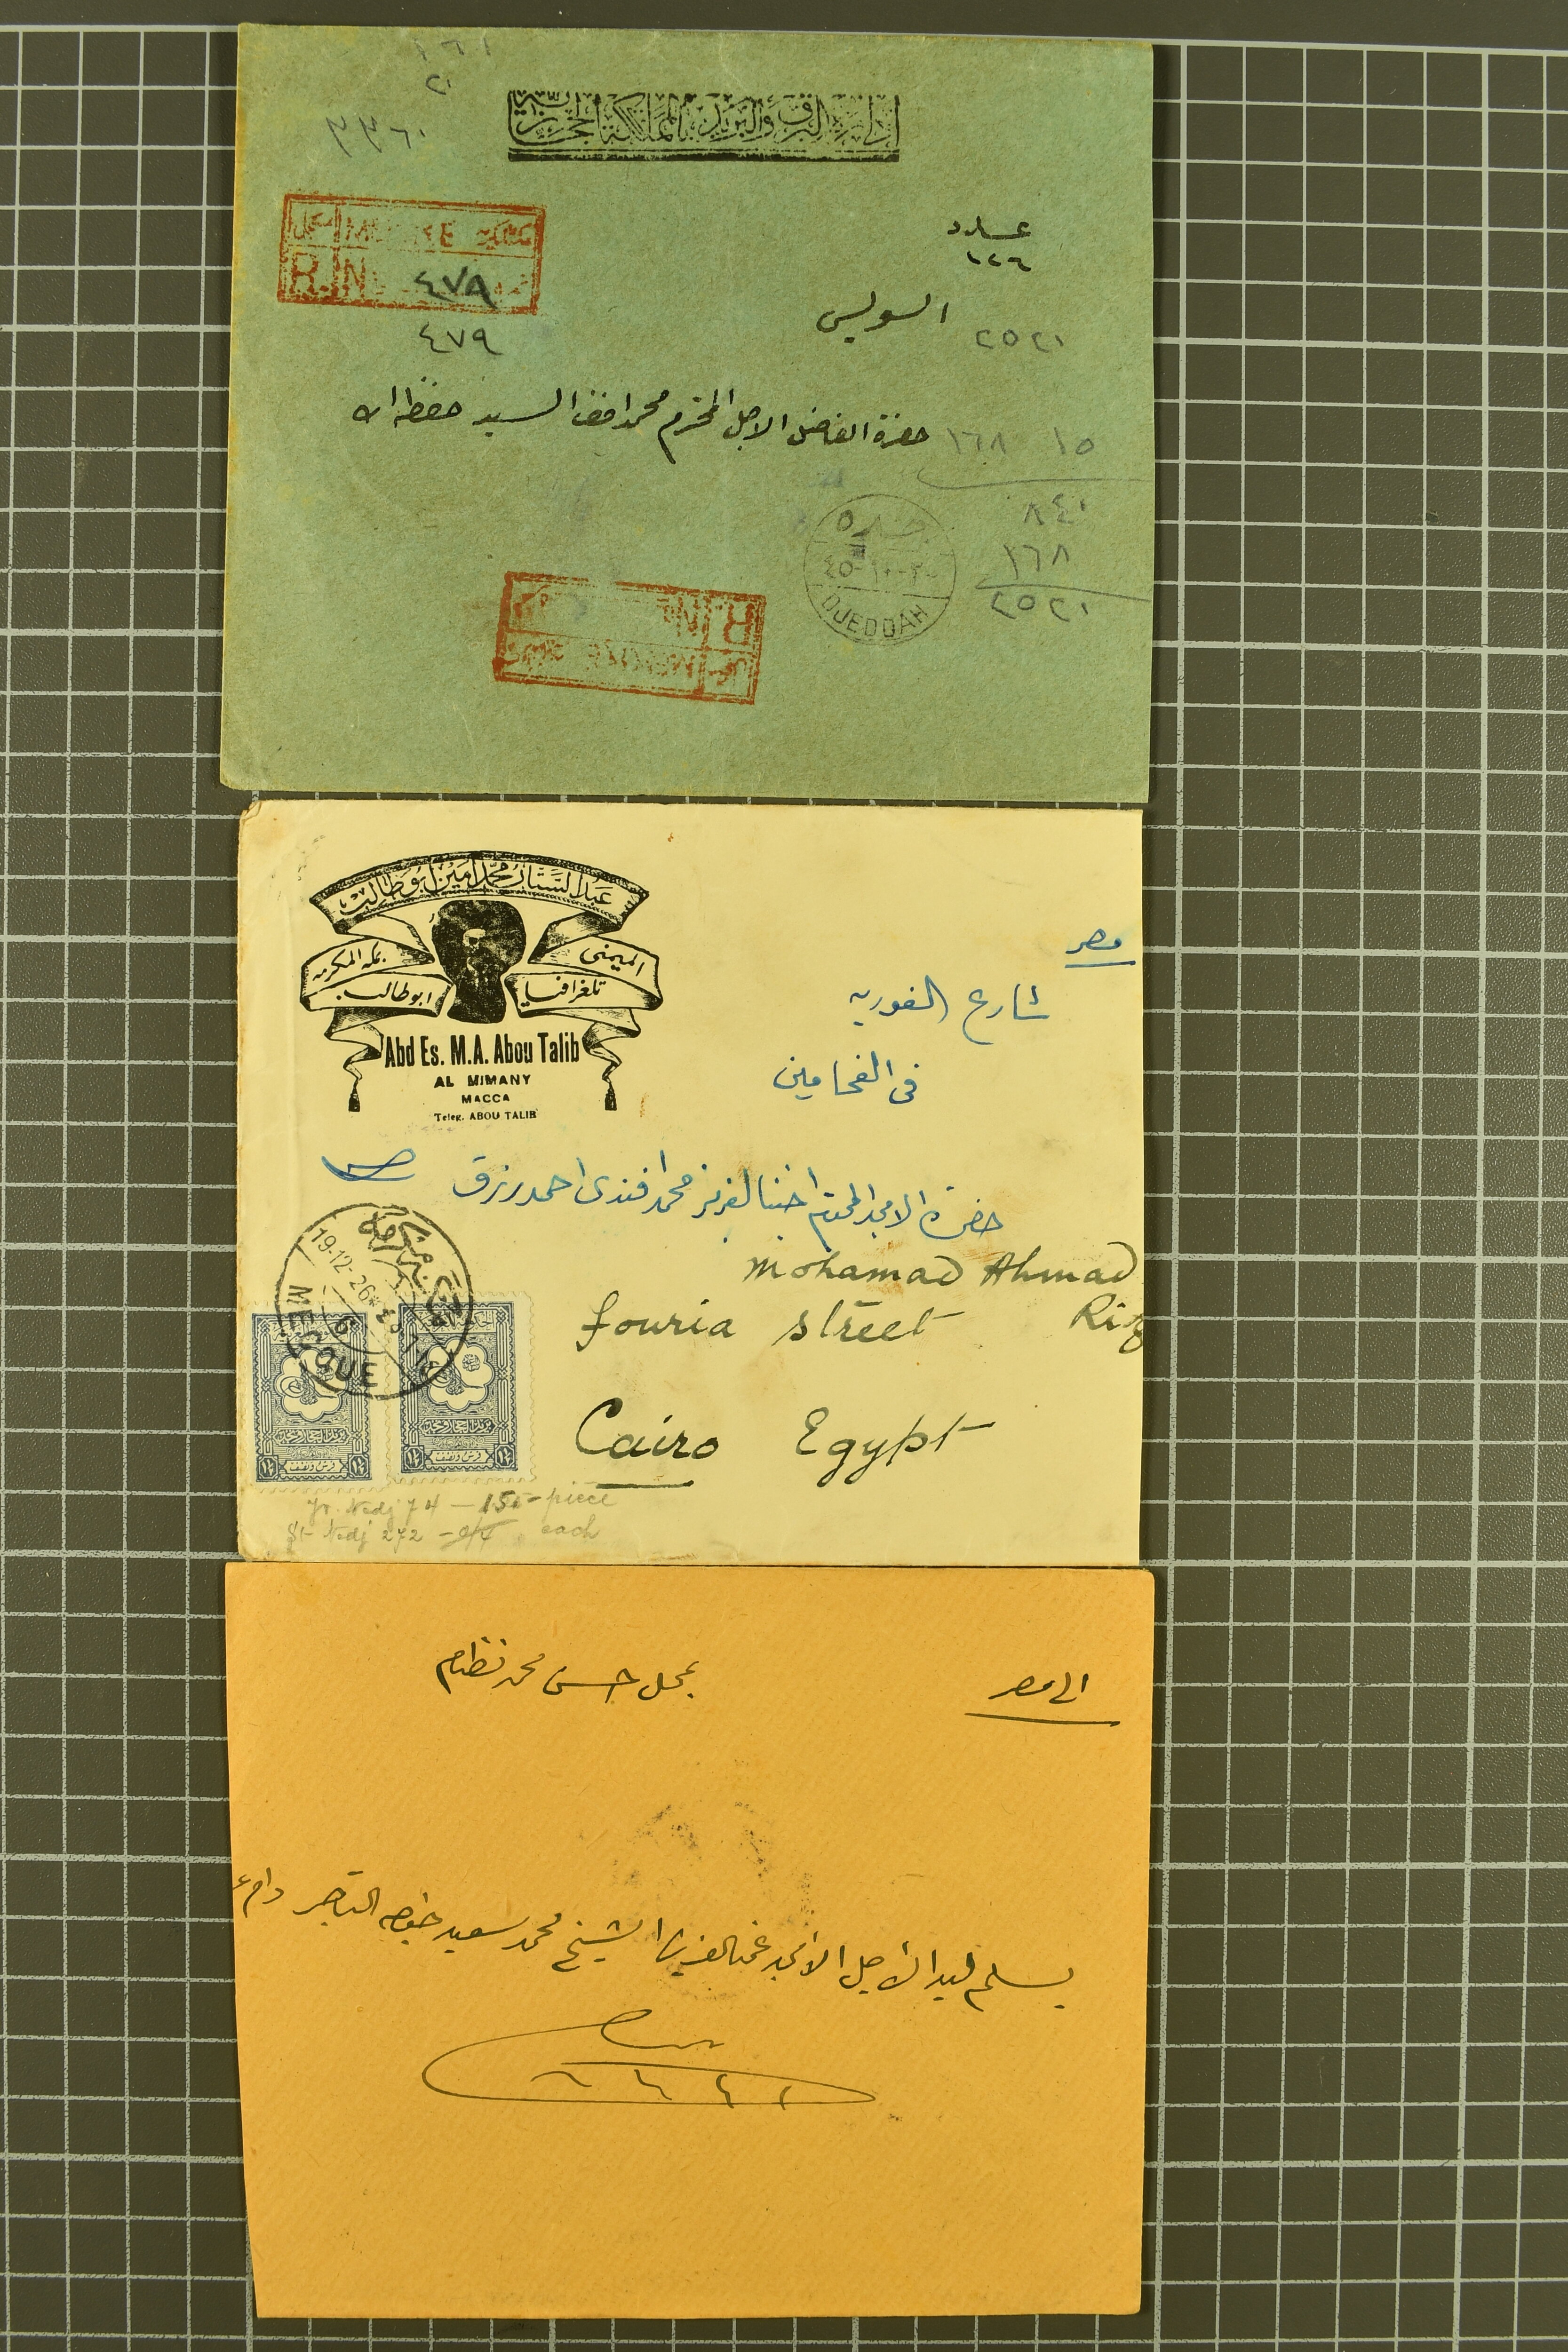 ٣٣٦٠
إدارة البرق والبريد بالمملكة الحجازية
مسجل MECQUE مكة
R. No ٤٧٩
٤٧٩
عدد
١٢٦
السويس
٢٥٢٠
حضرة الفاضل الاجل المحترم محمد افندي السيد حفظه الله
١٦٨ ١٥
٨٤٠
١٦٨
٢٥٢٠
جدة
DJEDDAH
R. No
عبد الستار محمد امين ابو طالب
الميمني بمكة المكرمه
تلغرافيا ابوطالب
Abd Es. M.A. Abou Talib
AL MIMANY
MACCA
Teleg. ABOU TALIB
مصر
شارع الغوريه
في الفحامين
حضرة الامجد المحترم اخينا العزيز محمد افندى احمد رزق
Mohamad Ahmad
Rizq
fouria street
Cairo Egypt
مكة مكرمة
19-12-26
6
MECQUE
Yv. Nedj 74 — 15 — piece
St Nedj 272 — each
الى مصر
بمحل حسن محمد نظام
يسلم ليد الأجل الأمجد عمنا العزيز الشيخ محمد سعيد خوجه التاجر دام